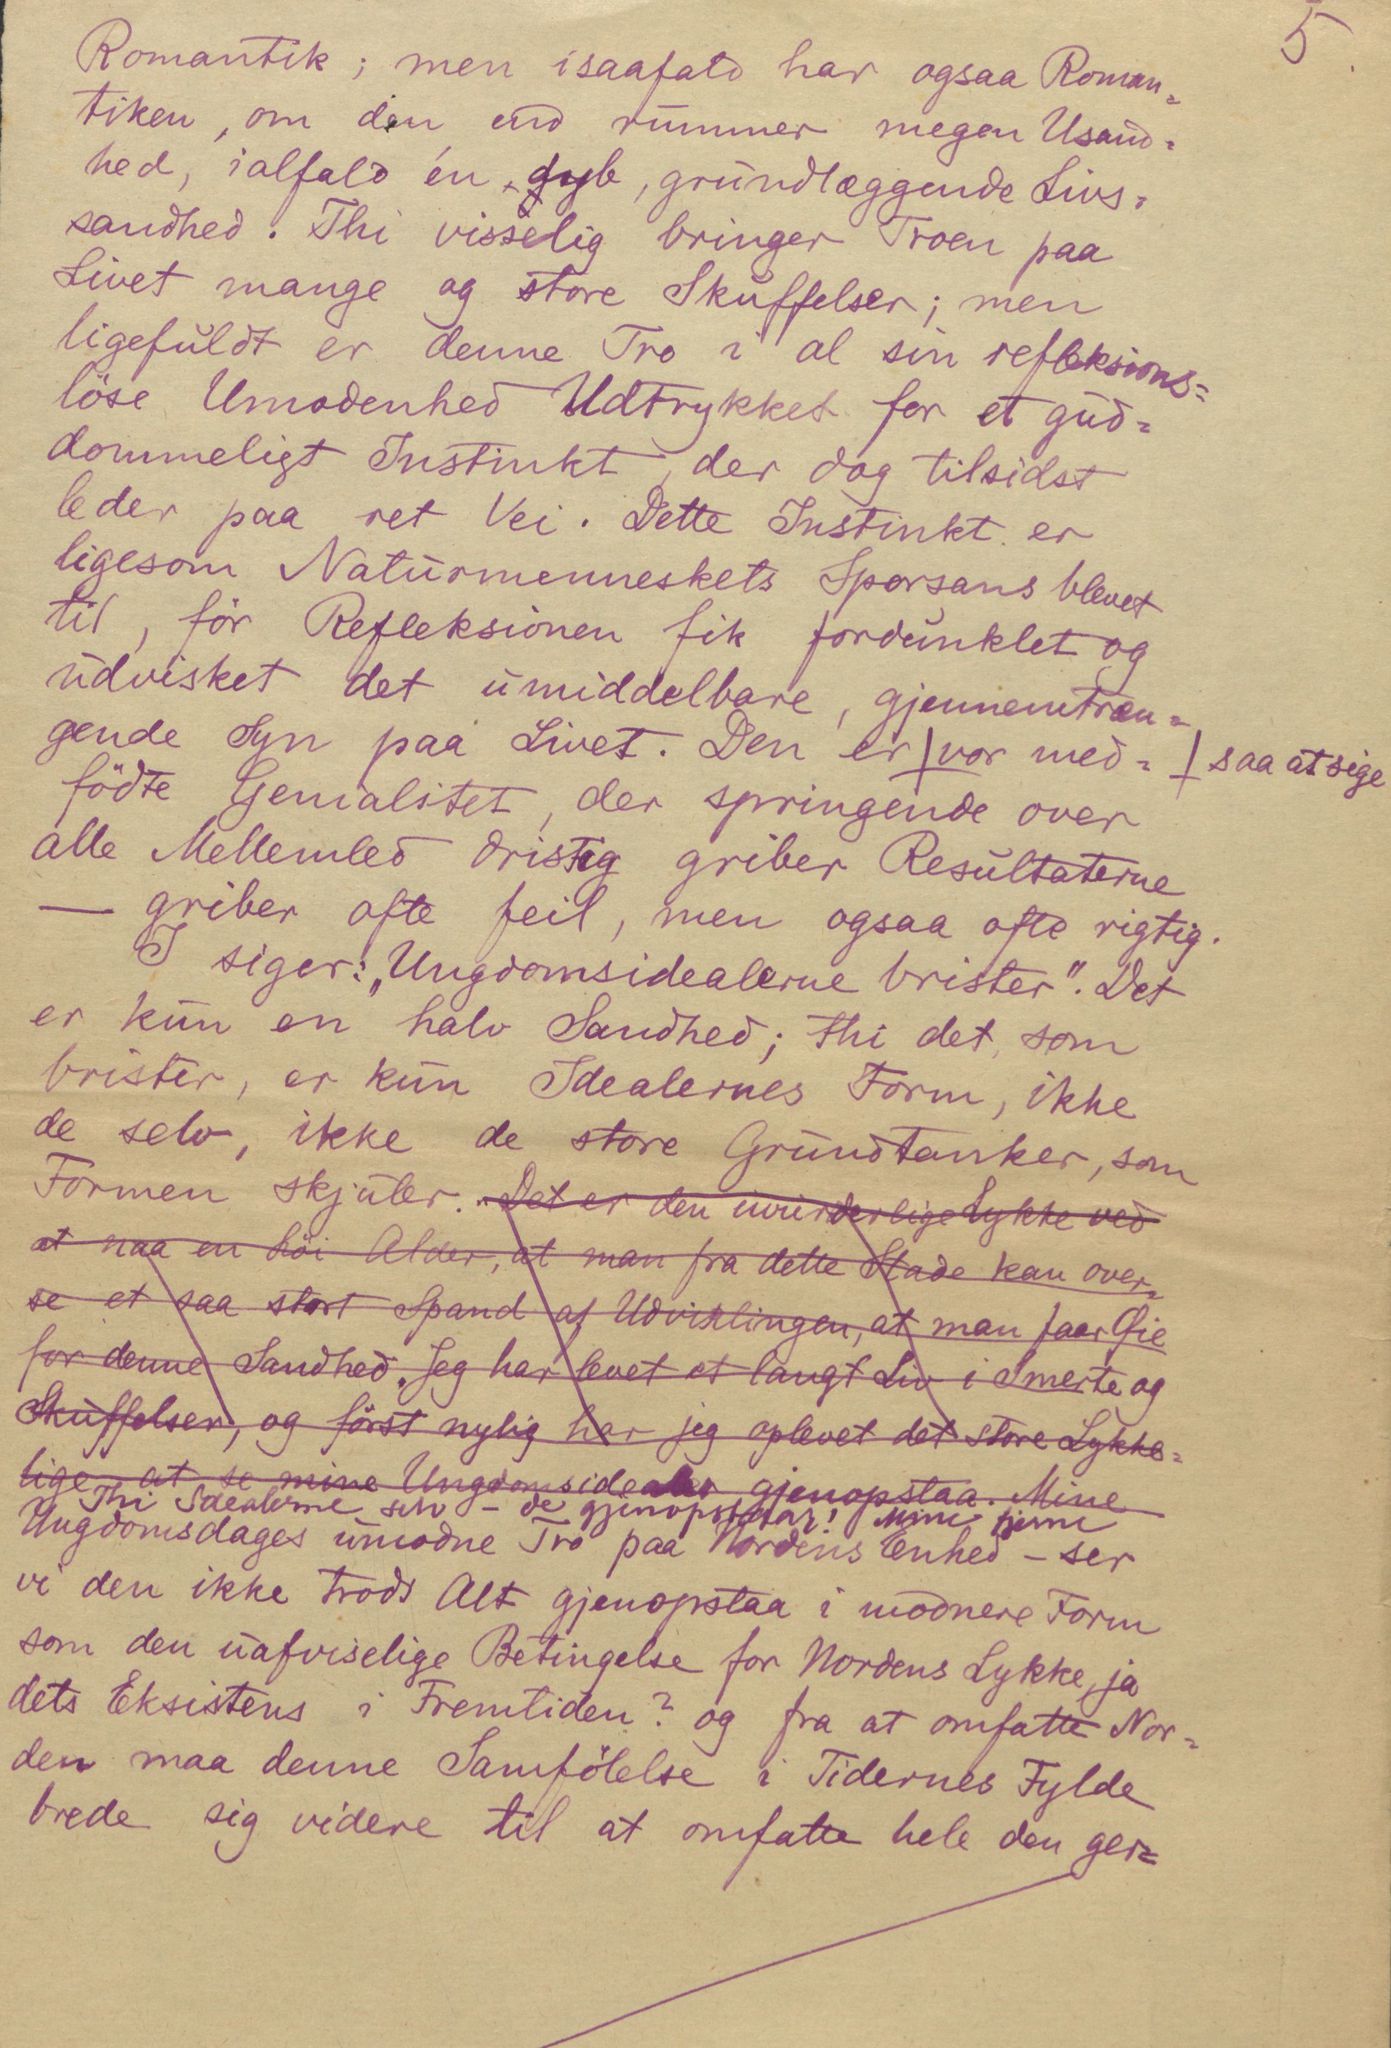 5.
Romantik; men isaafald har ogsaa Roman=
tiken, om den end rummer megen Usand=
hed, ialfald én dyb, grundlæggende Livs=
sandhed. Thi visselig bringer Troen paa
Livet mange og store Skuffelser; men
ligefuldt er denne Tro i al sin refleksions=
löse Umodenhed Udtrykket for et gud=
dommeligt Instinkt, der dog tilsidst
leder paa ret Vei. Dette Instinkt er
ligesom Naturmenneskets Sporsans blevet
til, för Refleksionen fik fordunklet og
udvisket det umiddelbare, gjennemtræn=
gende Syn paa Livet. Den er ⌡ vor med= ⌡ saa at sige
födte Genialitet, der springende over
alle Mellemled dristig griber Resultaterne
— griber ofte feil, men ogsaa ofte rigtig.
I siger: „Ungdomsidealerne brister". Det
er kun en halv Sandhed; thi det, som
brister, er kun Idealernes Form, ikke
de selv, ikke de store Grundtanker, som
Formen skjuler. Det er den uvurderlige Lykke ved
at naa en höi Alder, at man fra dette Stade kan over=
se et saa stort Spand af Udviklingen, at man faar Øie
for denne Sandhed. Jeg har levet et langt Liv i Smerte og
Skuffelser, og först nylig har jeg oplevet det store Lykke=
lige at se mine Ungdomsidealer gjenopstaa. Mine
Thi Idealerne selv – de gjenopstaar! Mine fjerne
Ungdomsdages umodne Tro paa Nordens Enhed – ser
vi den ikke trods Alt gjenopstaa i modnere Form
som den uafviselige Betingelse for Nordens Lykke, ja
dets Eksistens i Fremtiden? og fra at omfatte Nor=
den maa denne Samfölelse i Tidernes Fylde
brede sig videre til at omfatte hele den ger=